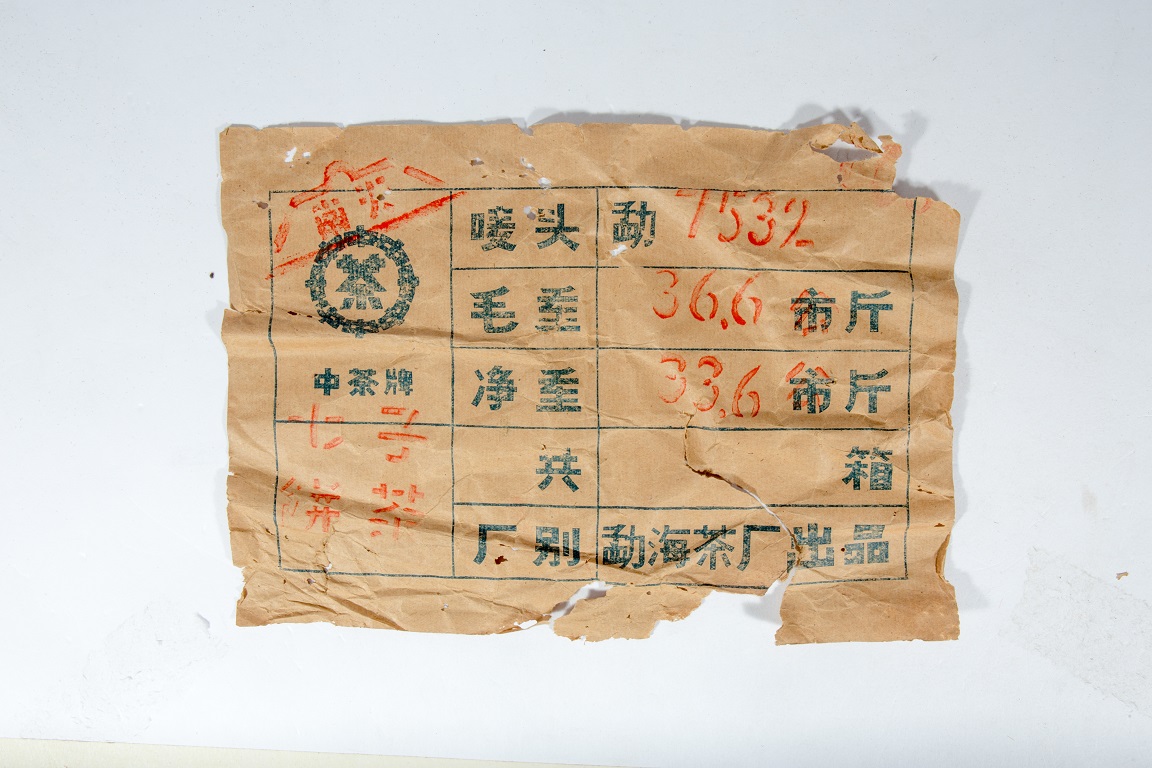 茶
中茶牌
七号
饼茶
唛头 勐 7532
毛重 36.6 市斤
净重 33.6 市斤
共 箱
厂别 勐海茶厂出品